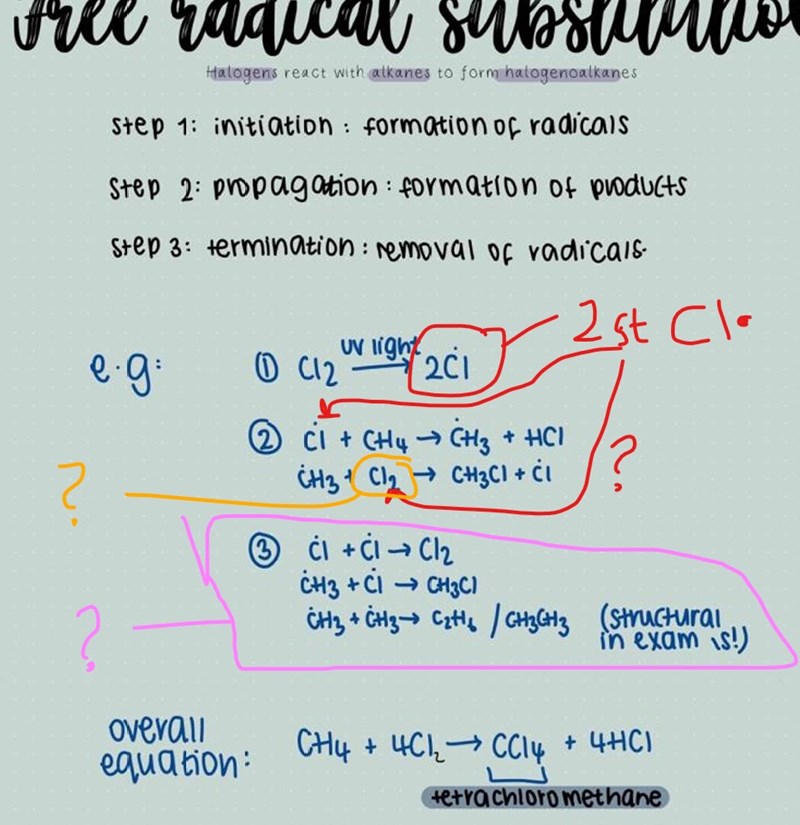 free radical substitution
Halogens react with alkanes to form halogenoalkanes
step 1: initiation : formation of radicals
step 2: propagation : formation of products
step 3: termination : removal of radicals.
2st Cl•
e.g: ① Cl2 uv light → 2Ċl
② Ċl + CH4 → ĊH3 + HCl
?
ĊH3 + Cl2 → CH3Cl + Ċl
?
③ Ċl + Ċl → Cl2
ĊH3 + Ċl → CH3Cl
?
ĊH3 + ĊH3 → C2H6 / CH3CH3 (structural
in exam is!)
overall
equation: CH4 + 4Cl2 → CCl4 + 4HCl
tetrachloromethane